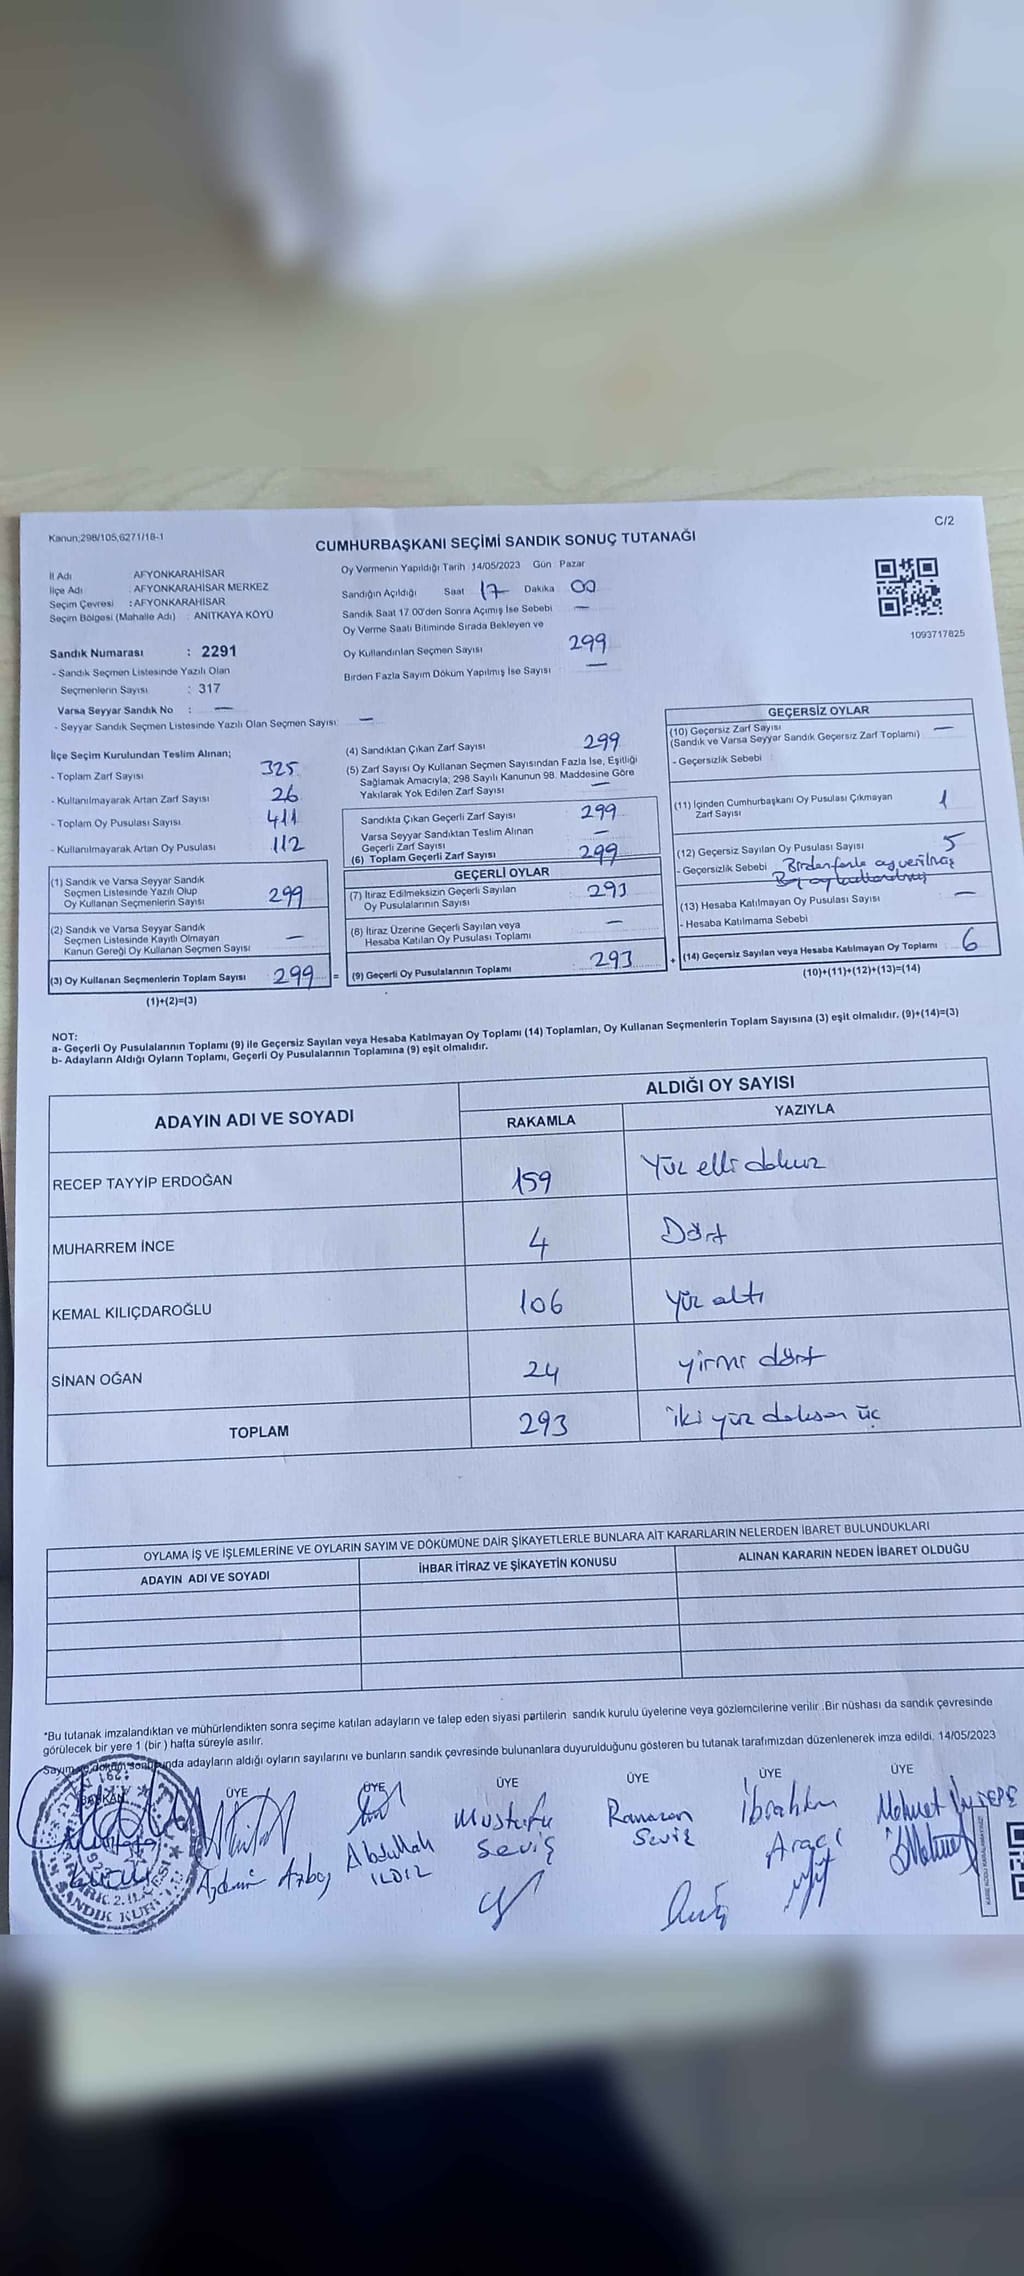 Kanun;298/105,6271/18-1
C/2
CUMHURBAŞKANI SEÇİMİ SANDIK SONUÇ TUTANAĞI
İl Adı : AFYONKARAHİSAR
İlçe Adı : AFYONKARAHİSAR MERKEZ
Seçim Çevresi : AFYONKARAHİSAR
Seçim Bölgesi (Mahalle Adı) : ANITKAYA KÖYÜ
Sandık Numarası : 2291
- Sandık Seçmen Listesinde Yazılı Olan
Seçmenlerin Sayısı : 317
Varsa Seyyar Sandık No : —
- Seyyar Sandık Seçmen Listesinde Yazılı Olan Seçmen Sayısı: —
Oy Vermenin Yapıldığı Tarih 14/05/2023 Gün Pazar
Sandığın Açıldığı Saat 17 Dakika 00
Sandık Saat 17.00'den Sonra Açımış İse Sebebi —
Oy Verme Saati Bitiminde Sırada Bekleyen ve
Oy Kullandırılan Seçmen Sayısı 299
Birden Fazla Sayım Döküm Yapılmış İse Sayısı —
1093717825
İlçe Seçim Kurulundan Teslim Alınan;
- Toplam Zarf Sayısı 325
- Kullanılmayarak Artan Zarf Sayısı 26
- Toplam Oy Pusulası Sayısı 411
- Kullanılmayarak Artan Oy Pusulası 112
(1) Sandık ve Varsa Seyyar Sandık
Seçmen Listesinde Yazılı Olup
Oy Kullanan Seçmenlerin Sayısı 299
(2) Sandık ve Varsa Seyyar Sandık
Seçmen Listesinde Kayıtlı Olmayan
Kanun Gereği Oy Kullanan Seçmen Sayısı —
(3) Oy Kullanan Seçmenlerin Toplam Sayısı 299 =
(1)+(2)=(3)
(4) Sandıktan Çıkan Zarf Sayısı 299
(5) Zarf Sayısı Oy Kullanan Seçmen Sayısından Fazla İse, Eşitliği
Sağlamak Amacıyla, 298 Sayılı Kanunun 98. Maddesine Göre
Yakılarak Yok Edilen Zarf Sayısı —
Sandıkta Çıkan Geçerli Zarf Sayısı 299
Varsa Seyyar Sandıktan Teslim Alınan
Geçerli Zarf Sayısı —
(6) Toplam Geçerli Zarf Sayısı 299
GEÇERLİ OYLAR
(7) İtiraz Edilmeksizin Geçerli Sayılan
Oy Pusulalarının Sayısı 293
(8) İtiraz Üzerine Geçerli Sayılan veya
Hesaba Katılan Oy Pusulası Toplamı —
(9) Geçerli Oy Pusulalarının Toplamı 293 +
GEÇERSİZ OYLAR
(10) Geçersiz Zarf Sayısı
(Sandık ve Varsa Seyyar Sandık Geçersiz Zarf Toplamı) —
- Geçersizlik Sebebi
(11) İçinden Cumhurbaşkanı Oy Pusulası Çıkmayan
Zarf Sayısı 1
(12) Geçersiz Sayılan Oy Pusulası Sayısı 5
- Geçersizlik Sebebi Birden fazla oy verilmiş
(13) Hesaba Katılmayan Oy Pusulası Sayısı —
- Hesaba Katılmama Sebebi
(14) Geçersiz Sayılan veya Hesaba Katılmayan Oy Toplamı 6
(10)+(11)+(12)+(13)=(14)
NOT:
a- Geçerli Oy Pusulalarının Toplamı (9) ile Geçersiz Sayılan veya Hesaba Katılmayan Oy Toplamı (14) Toplamları, Oy Kullanan Seçmenlerin Toplam Sayısına (3) eşit olmalıdır. (9)+(14)=(3)
b- Adayların Aldığı Oyların Toplamı, Geçerli Oy Pusulalarının Toplamına (9) eşit olmalıdır.
ADAYIN ADI VE SOYADI
ALDIĞI OY SAYISI
RAKAMLA YAZIYLA
RECEP TAYYİP ERDOĞAN 159 Yüz elli dokuz
MUHARREM İNCE 4 Dört
KEMAL KILIÇDAROĞLU 106 Yüz altı
SİNAN OĞAN 24 yirmi dört
TOPLAM 293 iki yüz doksan üç
OYLAMA İŞ VE İŞLEMLERİNE VE OYLARIN SAYIM VE DÖKÜMÜNE DAİR ŞİKAYETLERLE BUNLARA AİT KARARLARIN NELERDEN İBARET BULUNDUKLARI
ADAYIN ADI VE SOYADI İHBAR İTİRAZ VE ŞİKAYETİN KONUSU ALINAN KARARIN NEDEN İBARET OLDUĞU
*Bu tutanak imzalandıktan ve mühürlendikten sonra seçime katılan adayların ve talep eden siyasi partilerin sandık kurulu üyelerine veya gözlemcilerine verilir .Bir nüshası da sandık çevresinde
görülecek bir yere 1 (bir ) hafta süreyle asılır.
Sayım ve döküm sonunda adayların aldığı oyların sayılarını ve bunların sandık çevresinde bulunanlara duyurulduğunu gösteren bu tutanak tarafımızdan düzenlenerek imza edildi. 14/05/2023
BAŞKAN ÜYE ÜYE ÜYE ÜYE ÜYE ÜYE
Abdullah ILDIZ
Mustafa Seviş
Ramazan Seviş
İbrahim Araçı
Mehmet